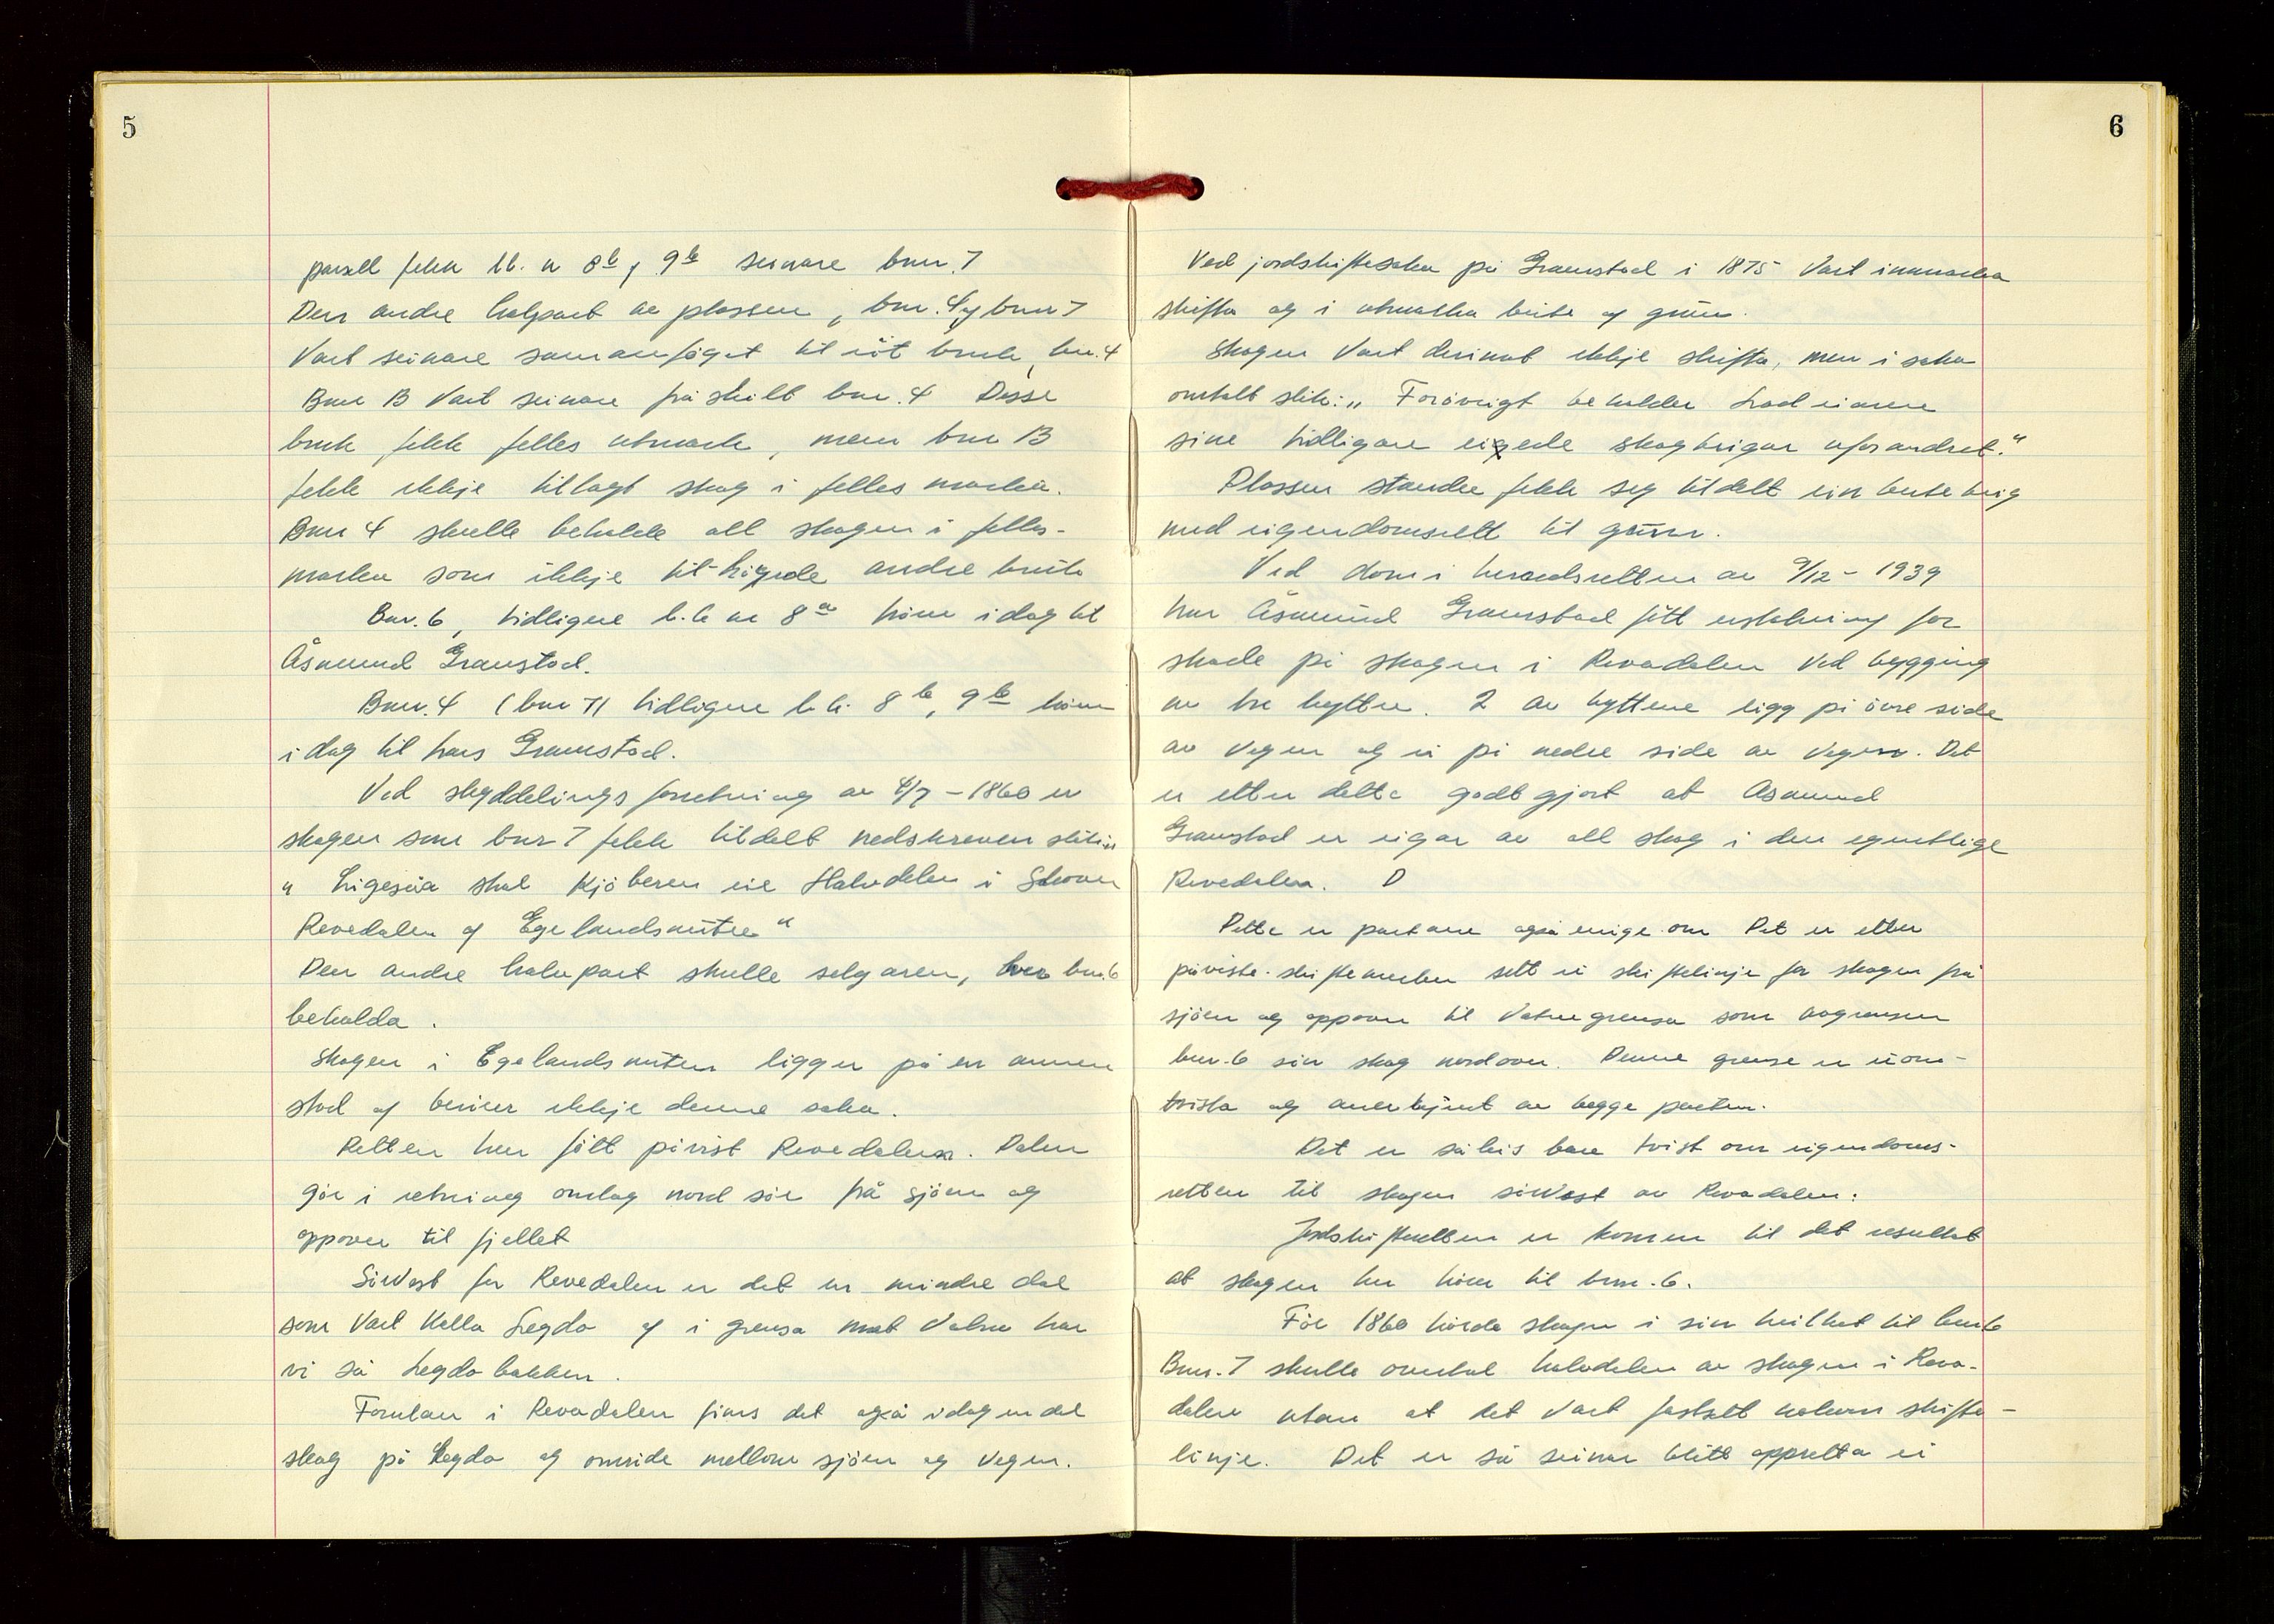 5
parsell fekk lb. nr 8b, 9b seinare bnr. 7
Den andre halpart av plassen, bnr. 4 og bnr 7
Vart seinare samanföyet til eit bruk, bnr. 4
Bnr 13 Vart seinare fråskilt bnr. 4 Desse
bruk fekk felles utmark, men bnr 13
fekk ikkje tillagt skog i felles marka.
Bnr 4 skulle behalde all skogen i felles-
marka som ikkje tilhøyrde andre bruk
Bnr. 6, tidligere l.b nr 8a höure i dag til
Åsmund Gramstad.
Bnr. 4 (bnr 7) tidligere l.b. 8b, 9b höure
i dag til hans Gramstad.
Ved skyddelings forretning av 4/7 - 1860 er
skogen som bnr 7 fekk tildelt nedskreven slik:
" Ligesåa skal Kjöberen eie Halvdelen i Skoven
Revedalen og Egelandsnuten "
Den andre halvpart skulle selgaren, bnr. 6
behalda.
Skogen i Egelandsnuten ligger på en annen
stad og berører ikkje denne saka.
Retten har fått påvist Revedalen. Dalen
går i retning omlag nord sör frå sjöen og
oppover til fjellet
Sörvest for Revedalen er det en mindre dal
som Vart Kalla Legda og i grensa mot Vatne har
vi så Legdabakken.
Forutan i Revedalen fins det også idag en del
skog på Legda og område mellom sjöen og vegen.
6
Ved jordskiftesaka på Gramstad i 1875 Vart innmarka
skifta og i utmarka beite og grunn.
Skogen Vart derimot ikkje skifta, men i saka
omtalt slik: " Forövrigt beholder Lodeiarene
sine tidligare eigede skogteigar uforandret."
Plassen standre fekk seg tildelt ein beiteteig
med eigendomsrett til grunn.
Ved dom i herredsretten av 9/12 - 1939
har Åsmund Gramstad fått erstatning for
skade på skogen i Revadalen Ved bygging
av tre hytter. 2 av hyttene ligg på övre side
av vegen og ei på nedre side av vegen. Det
er etter dette godtgjort at Asmund
Gramstad er eigar av all skog i den egentlige
Revedalen. D
Dette er partane også enige om Det er etter
påviste skiftemerker sett ei skiftelinje for skogen frå
sjöen og oppover til Vatnegrensa som avgrensen
bnr. 6 sin skog nordover. Denne grense er uom-
tvista og anerkjent av begge parter.
Det er såleis bare tvist om eigendoms-
retten til skogen sörvest av Revadalen.
Jordskifteretten er komen til det resultat
at skogen her hörer til bnr. 6.
För 1860 hörde skogen i sin heilhet til bnr 6
Bnr. 7 skulle overtal halvdelen av skogen i Reva-
dalen utan at det Vart fastsatt nokon skifte-
linje. Det er så seinar blitt oppretta ei